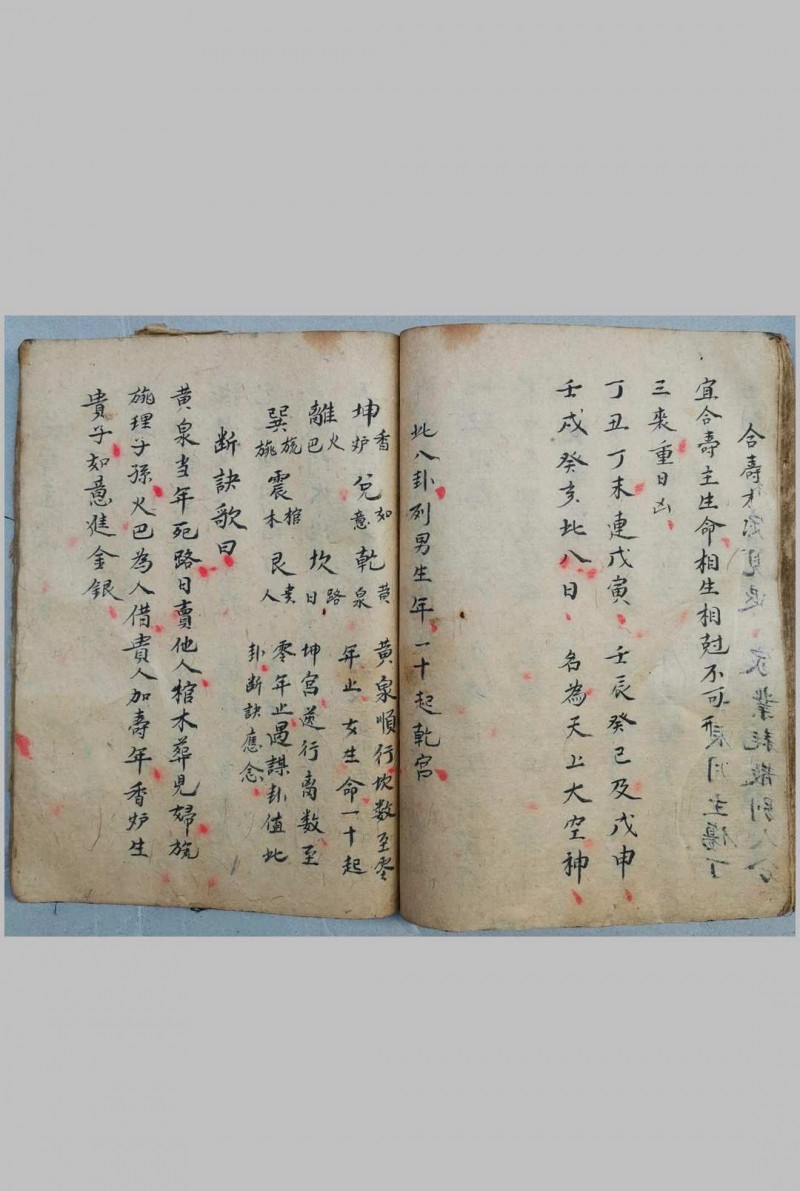 合壽木
宜合壽主生命相生相尅不可
三喪重日凶
丁丑丁未連戊寅 壬辰癸巳及戊申
壬戌癸亥此八日 名為天上大空神
此八卦列男生年一十起乾宮
坤香炉 兌如意 乾黃泉
離火巴 坎路日
巽旎旎 震棺木 艮贵人
黃泉順行坎数至零
年止女生命一十起
坤宮逆行离数至
零年止遇謀卦值此
卦断訣應念
断訣歌曰
黃泉当年死路日賣他人棺木葬見婦旎
旎理子孫火巴為人借貴人加壽年香炉生
貴子如意進金銀